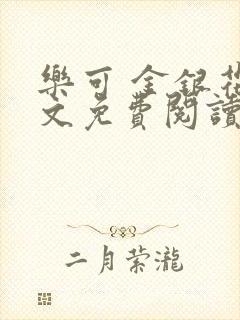 樂可 金銀花
文免費閱讀
二月萦瀧